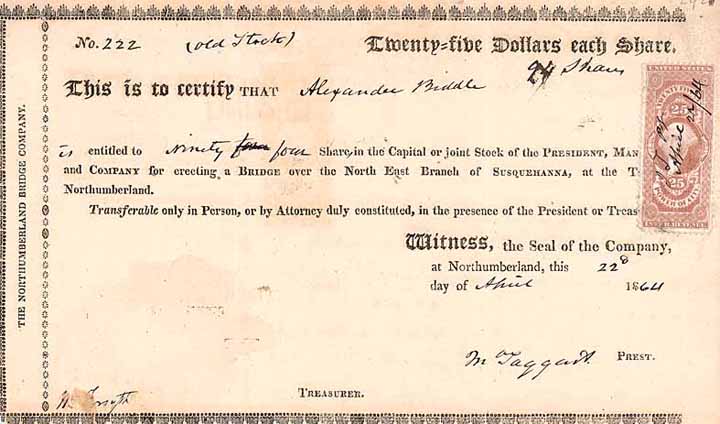 THE NORTHUMBERLAND BRIDGE COMPANY.
No. 222 (old Stock) Twenty=five Dollars each Share.
94 Shares
This is to certify THAT Alexander Biddle
is entitled to Ninety four four Share, in the Capital or joint Stock of the PRESIDENT, MAN
and COMPANY for erecting a BRIDGE over the North East Branch of SUSQUEHANNA, at the T
Northumberland.
Transferable only in Person, or by Attorney duly constituted, in the presence of the President or Treas
Witness, the Seal of the Company,
at Northumberland, this 22d
day of April 1864
M Taggart. PREST.
Wm Forsyth TREASURER.
UNITED STATES
25 25
April 22/64
25 25
INTER. REVENUE